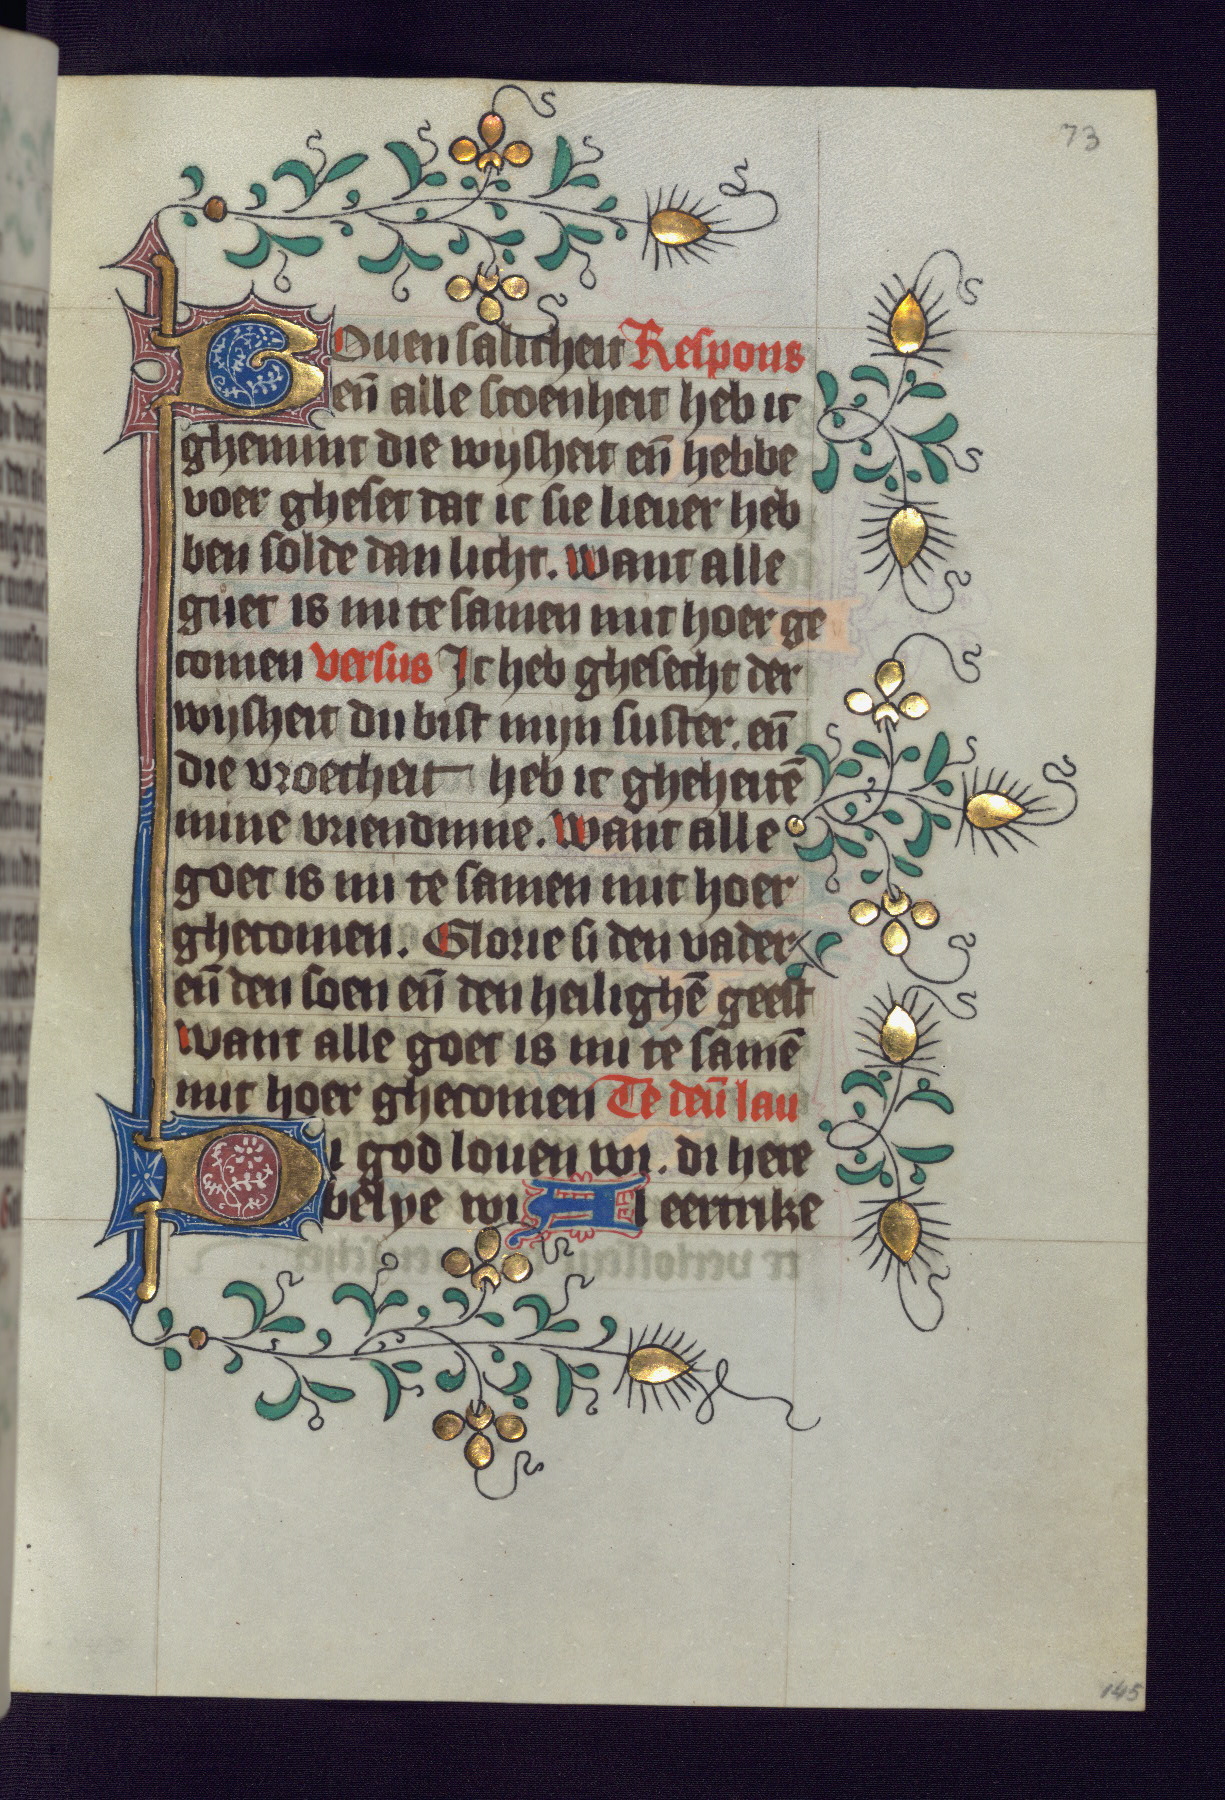 73
BOuen salicheit Respons
en̄ alle scoenheit heb ic
ghemint die wijsheit en̄ hebbe
voer gheset dat ic sie lieuer heb
ben solde dan licht. Want alle
guet is mi te samen mit hoer ge
comen versus Ic heb ghesecht der
wijsheit du bist mijn suster. en̄
die vroetheit heb ic gheheitē
mine vriendinne. Want alle
goet is mi te samen mit hoer
ghecomen. Glorie si den vader
en̄ den soen en̄ den heilighē geest
Want alle goet is mi te samē
mit hoer ghecomen Te deū lau
Di god louen wi. di here
belye wi Al eertrike
145